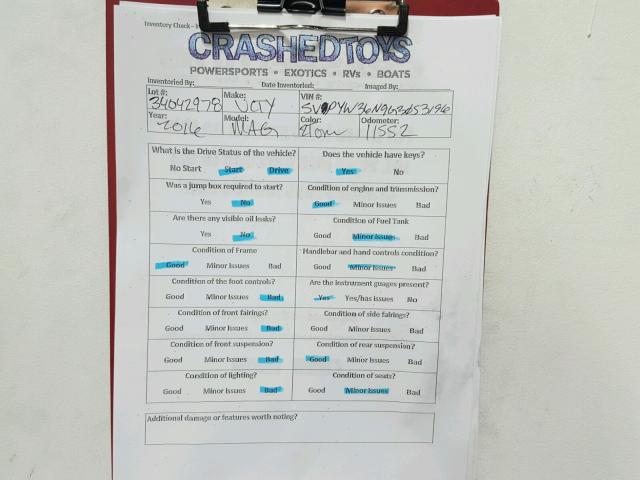 Inventory Check -
CRASHEDTOYS
POWERSPORTS • EXOTICS • RVs • BOATS
Inventoried By: Date Inventoried: Imaged By:
Lot #: 34042978 Make: VCTY VIN #:
Year: 2016 Model: MAG Color: Odometer: 11552
What is the Drive Status of the vehicle? Does the vehicle have keys?
No Start Start Drive Yes No
Was a jump box required to start? Condition of engine and transmission?
Yes No Good Minor Issues Bad
Are there any visible oil leaks? Condition of Fuel Tank
Yes No Good Minor Issues Bad
Condition of Frame Handlebar and hand controls condition?
Good Minor Issues Bad Good Minor Issues Bad
Condition of the foot controls? Are the instrument guages present?
Good Minor Issues Bad Yes Yes/has issues No
Condition of front fairings? Condition of side fairings?
Good Minor Issues Bad Good Minor Issues Bad
Condition of front suspension? Condition of rear suspension?
Good Minor Issues Bad Good Minor Issues Bad
Condition of lighting? Condition of seats?
Good Minor Issues Bad Good Minor Issues Bad
Additional damage or features worth noting?